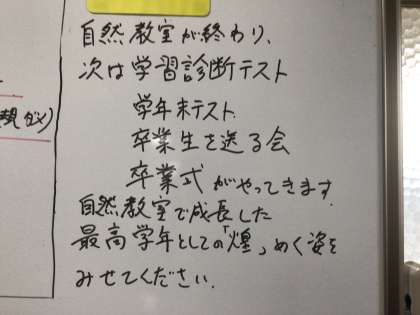 自然教室が終わり、
次は学習診断テスト
学年末テスト
卒業生を送る会
卒業式がやってきます.
自然教室で成長した
最高学年としての「煌」めく姿を
みせてください.